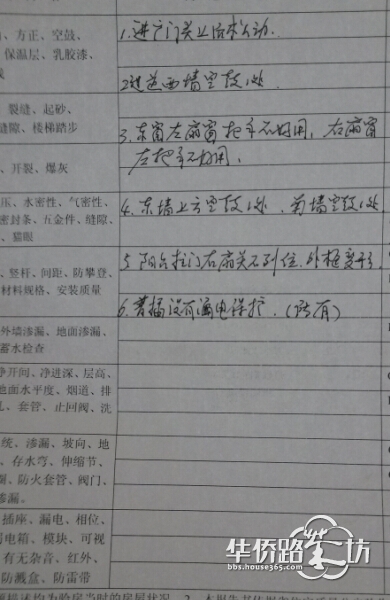 、方正、空鼓、
保温层、乳胶漆、
1.进户门关上后松动.
2过道西墙空鼓1处.
裂缝、起砂、
缝隙、楼梯踏步
3.东窗左扇窗把手不好用,右扇窗
、开裂、爆灰
左把手不好用.
压、水密性、气密性、
密封条、五金件、缝隙、
猫眼
4.东墙上方空鼓1处,南墙空鼓1处.
、竖杆、间距、防攀登、
材料规格、安装质量
5.阳台拉门右扇关不到位.外框变形.
6.普插没有漏电保护.(所有)
外墙渗漏、地面渗漏、
蓄水检查
净开间、净进深、层高、
地面水平度、烟道、排
孔、套管、止回阀、洗
统、渗漏、坡向、地
、存水弯、伸缩节、
、防火套管、阀门、
渗漏。
插座、漏电、相位、
弱电箱、模块、可视
有无杂音、红外、
防溅盒、防雷带
华侨路茶坊
bbs.house365.com